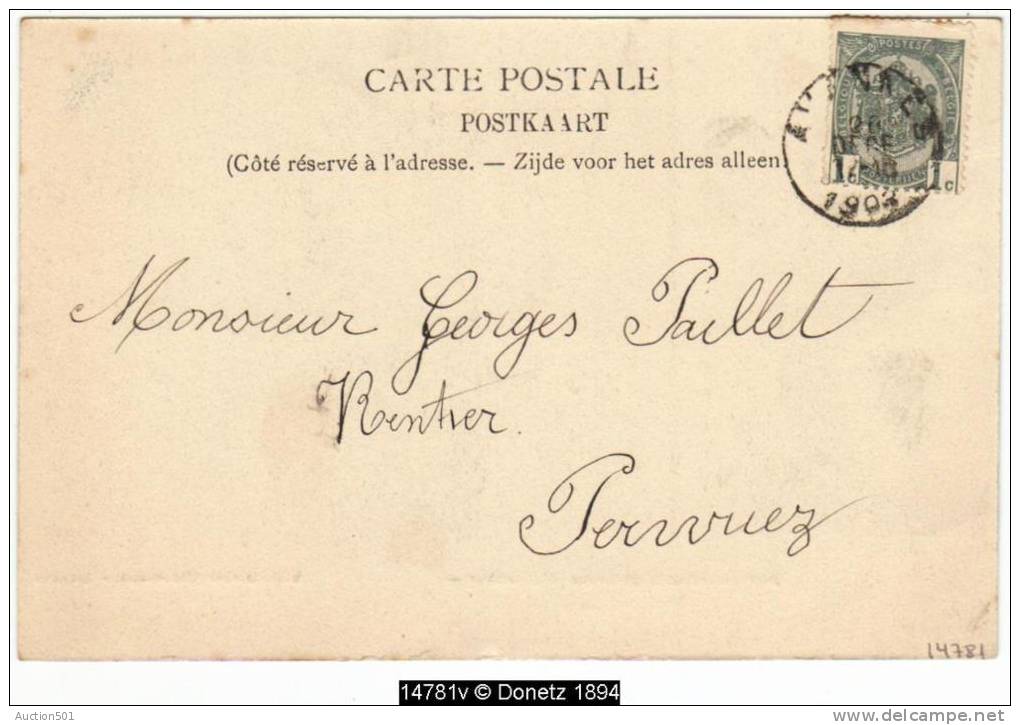 CARTE POSTALE
POSTKAART
(Côté réservé à l'adresse. — Zijde voor het adres alleen.
POSTES
1c 1c
DECE
1903
Monsieur Georges Paillet
Rentier.
Perwuez
14781
14781v © Donetz 1894
Auction501
www.delcampe.net